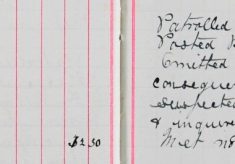 Patrolled
Posted
Omitted
consequen
suspected
& inquire
$2.50
Met